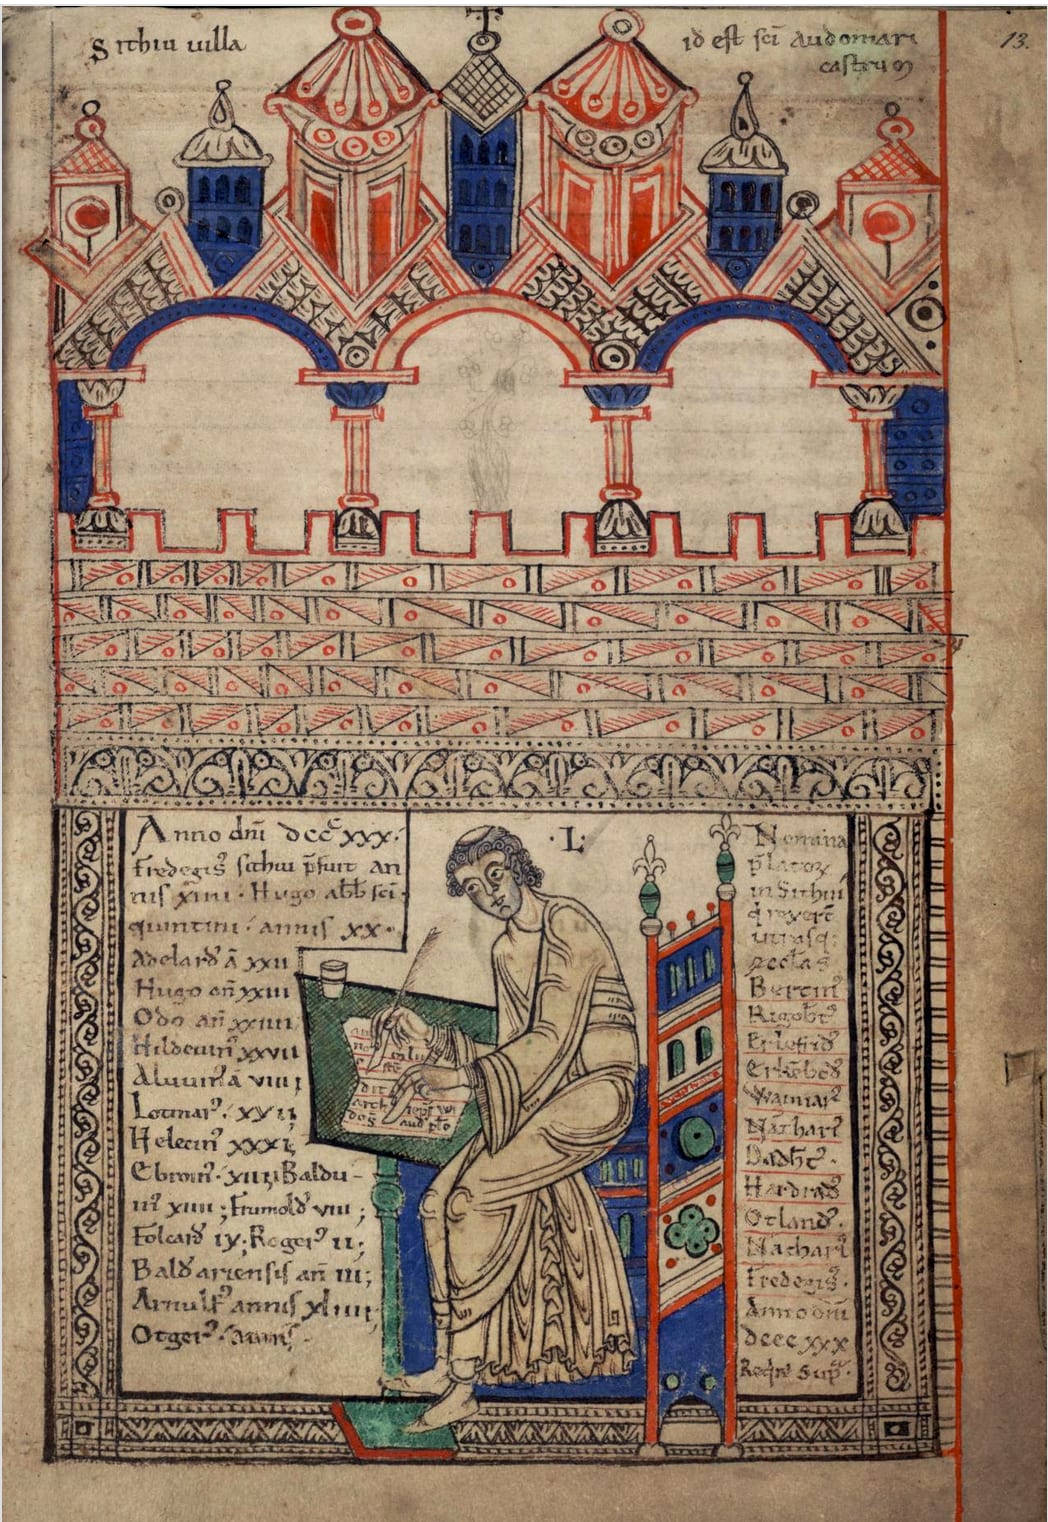 Sithiu uilla
id est sci Audomari
castrum
13.
Anno dni dccc xxx.
Fredegis' sithiu pfuit an
nis xiiii. Hugo abb sci
quintini. annis xx.
Adelard' ā xxii
Hugo añ xxiii
Odo añ xxiiii
Hildeuin' xxvii
Aluuin' ā viii;
Lotmar'. xx ii
Helecin' xxxi;
Ebroin'. xiii; Baldu-
in' xiiii; Frumold' viii;
Folcard' ix; Roger' ii;
Bald' ariensis añ iii;
Arnulf' annis xliiii;
Otger'. annis
.L:
Nomina
platoꝝ
in Sithiu
q rexert
utrasq:
ecclas
Bertin'
Rigobt'
Erlefrid'
Erkebod'
Wamar'
Nathari'
Dadbt'.
Hardrad'
Otland'.
Nathari'
Fredegis'.
Anno dni
dccc xxx
Reqre sup.